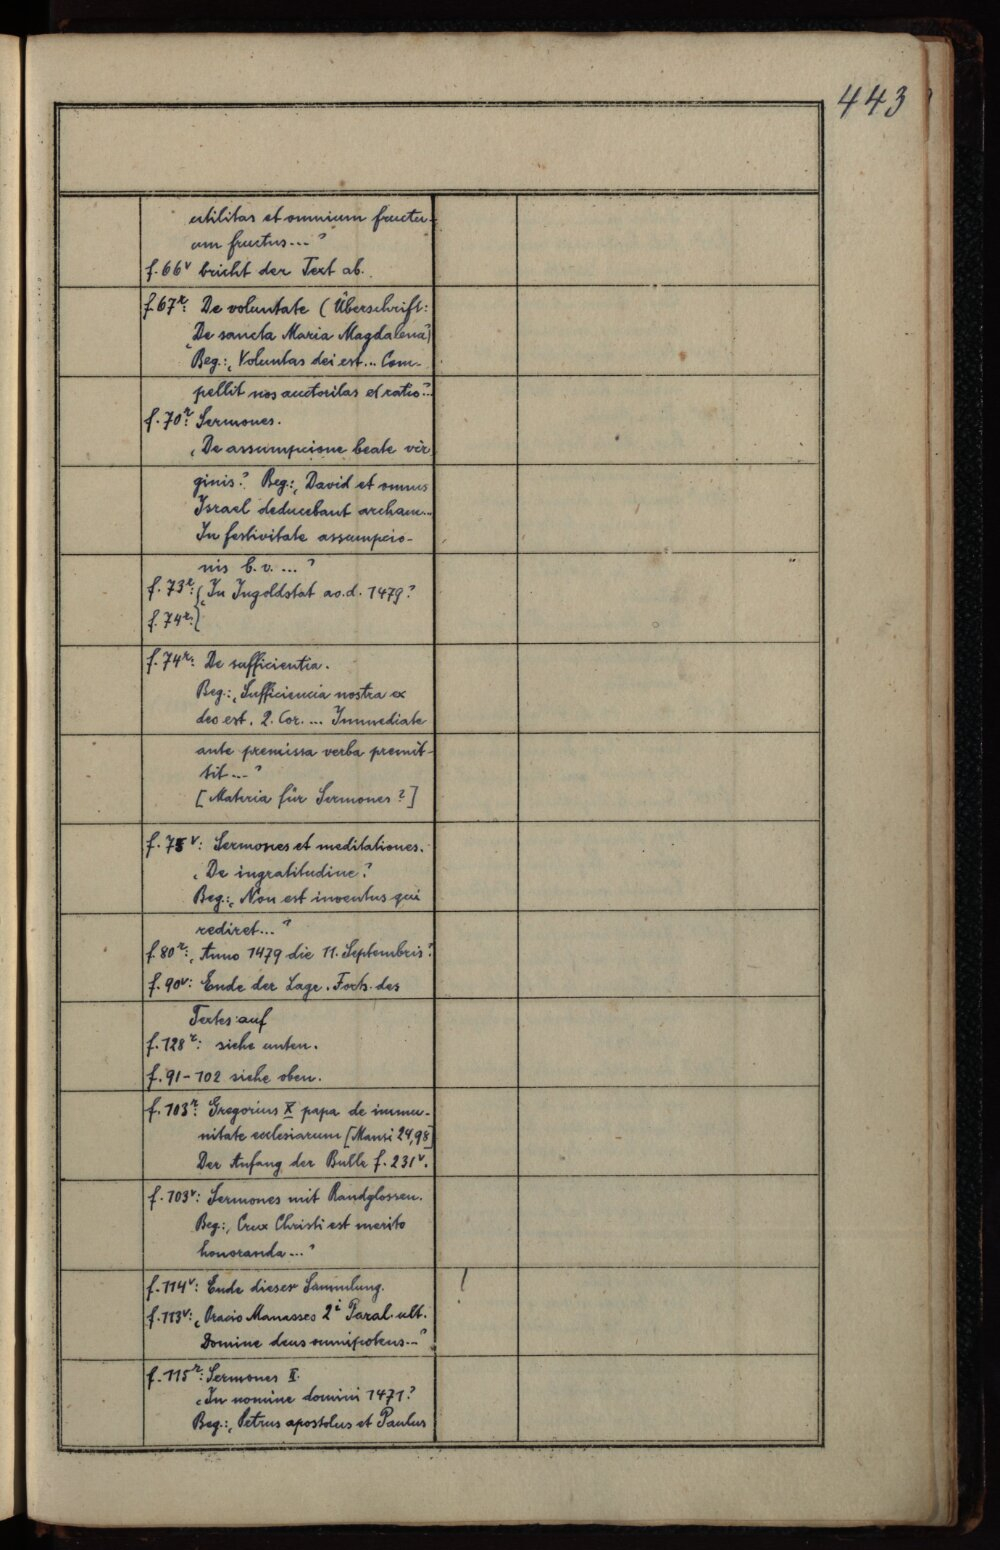 443
utilitas et omnium fructu-
um fructus...“
f. 66v bricht der Text ab.
f. 67r: De voluntate (Überschrift:
„De sancta Maria Magdalena“)
Beg.: „Voluntas dei est... Com-
pellit nos auctoritas et ratio“...
f. 70r: Sermones.
„De assumpcione beate vir
ginis“. Beg.: „David et omnis
Israel deducebant archam...
In festivitate assumpcio-
nis b. v. ...“
f. 73r: { „In Ingoldstat ao. d. 1479“.
f. 74r: {
f. 74r: De sufficientia.
Beg.: „Sufficiencia nostra ex
deo est. 2. Cor. ... Immediate
ante premissa verba premit-
tit...“
[Materia für Sermones?]
f. 75v: Sermones et meditationes.
„De ingratitudine“.
Beg.: „Non est inventus qui
rediret...“
f. 80r: „Anno 1479 die 11. Septembris“.
f. 90v: Ende der Lage. Forts. des
Textes auf
f. 128r: siehe unten.
f. 91-102 siehe oben.
f. 103r: Gregorius X papa de immu-
nitate ecclesiarum [Mansi 24,98]
Der Anfang der Bulle f. 231v.
f. 103v: Sermones mit Randglossen.
Beg.: „Crux Christi est merito
honoranda...“
f. 114v: Ende dieser Sammlung. !
f. 113v: „Oracio Manasses 2i Paral. ult.
Domine deus omnipotens...“
f. 115r: Sermones II.
„In nomine domini 1471“.
Beg.: „Petrus apostolus et Paulus